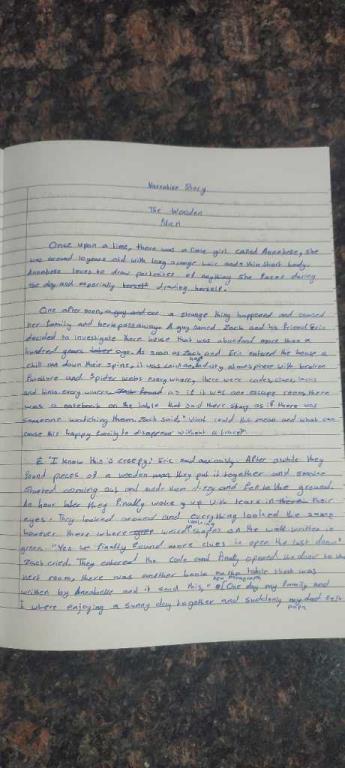 Narrative Story
The Wooden
Man
Once upon a time, there was a girl called Annabelle, she
was around 10 years old with long orange hair and a thin short body.
Annabelle loves to draw portraites of anything she faces during
the day and especially herself drawing herself.
One after noon, a strange thing happened and caused
her family and her to pass away. A guy named Zach and his friend Eric
decided to investigate there house that was abandond more than a
hundred years ago. As soon as Zach and Eric entered the house a
chill ran down their spins, it was atmosphere with broken
furniture and spider webs every where, there were codes, clues, locks
and hints every where as if it was one escape room, there
was a notebook on the table that said there story as if there was
someone watching them. Zach said," What could this mean and what can
cause this happy family to disappear without a trace?"
"I know this is creepy" Eric said anxiously. After a while they
found pieces of a wooden man they put it together and smoke
started coming out and made them dizzy and fell to the ground.
An hour later they finally woke up with tears in their
eyes. They looked around and everything looked the same
however there where weird looking shapes on the wall written in
green. "Yes we finally found more clues to open the last door"
Zach cried. They entered the code and finally opened the door to the
next room, there was another book on the table that was
new paragraph
written by Annabelle and it said this," One day my family and
I where enjoying a sunny day together and suddenly my dad fell